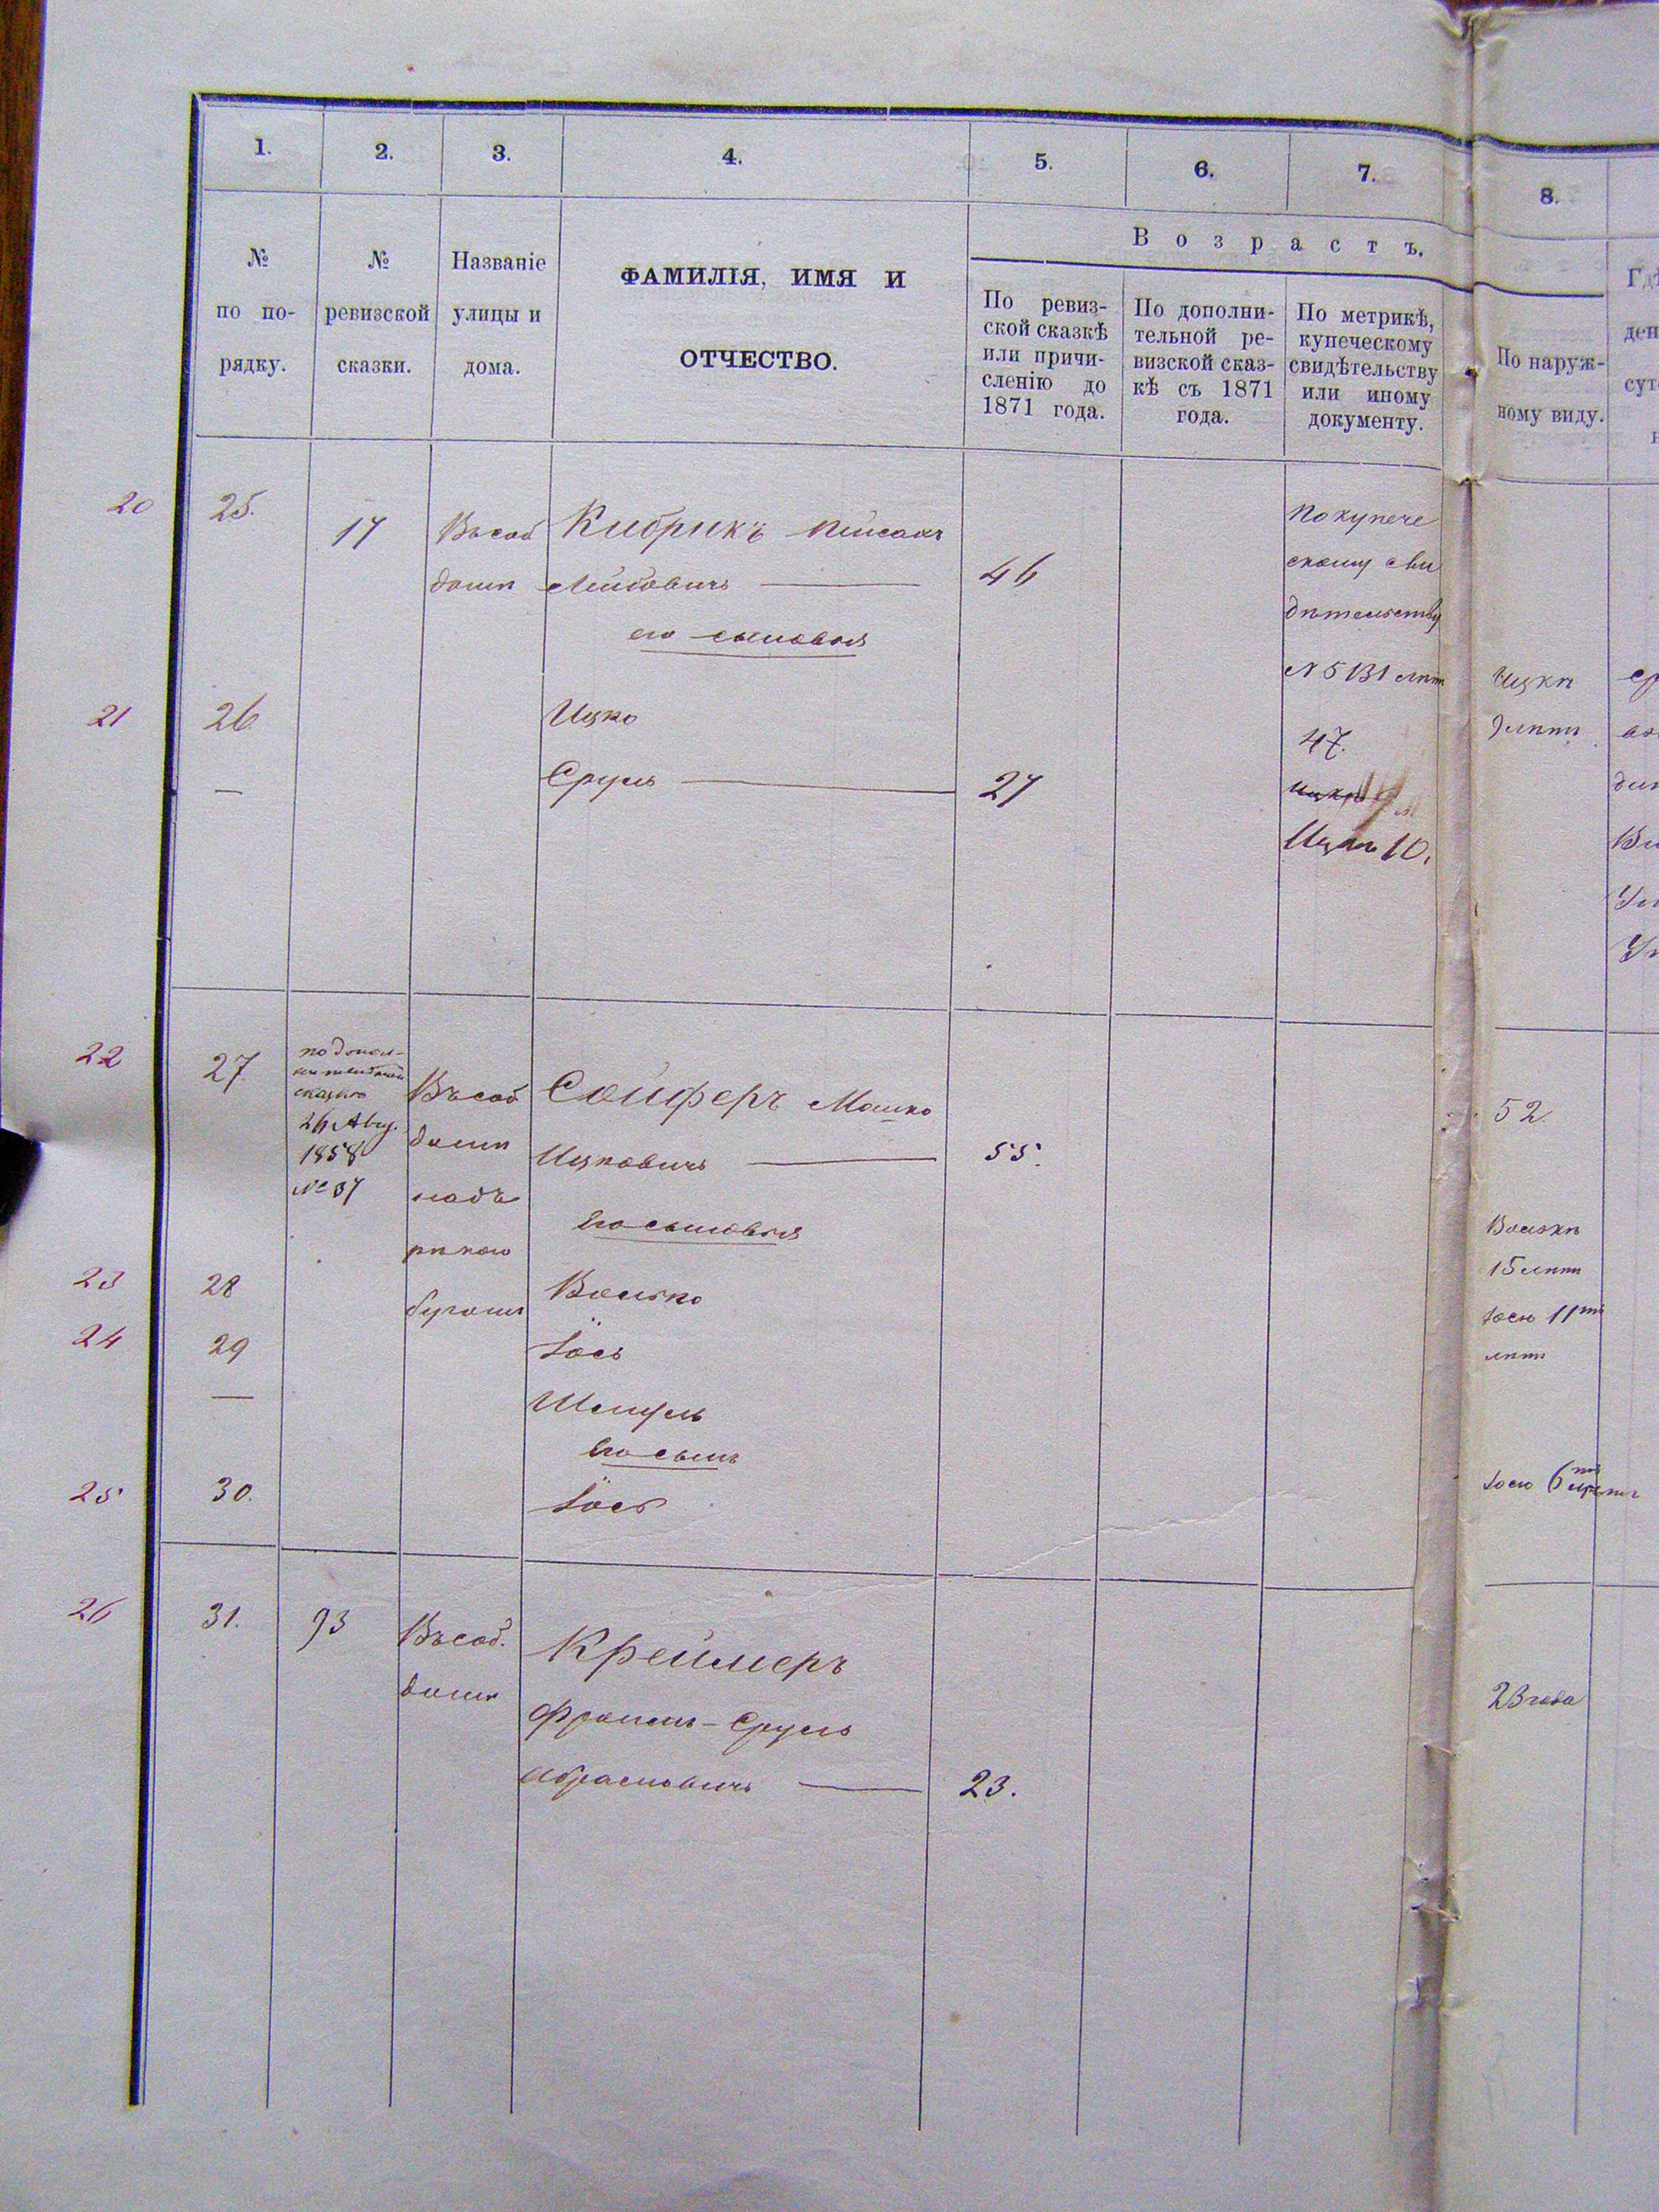 1. 2. 3. 4. 5. 6. 7. 8.
В о з р а с т ъ.
№
по по-
рядку.
№
ревизской
сказки.
Названіе
улицы и
дома.
ФАМИЛІЯ, ИМЯ И
ОТЧЕСТВО.
По ревиз-
ской сказкѣ
или причи-
сленію до
1871 года.
По дополни-
тельной ре-
визской сказ-
кѣ съ 1871
года.
По метрикѣ,
купеческому
свидѣтельству
или иному
документу.
По наруж-
ному виду.
20 25. 17
Въ соб
домѣ
Кибрикъ Пейсахъ
Лейбовичъ
46
его сыновья
По купече
скому сви
дѣтельству
N 5131 лѣт
47.
Ицкѣ 10.
21 26
Ицко
Сруль
27
Ицкѣ
9 лѣтъ
22 27
по допол-
нительной
сказкѣ
26 Авг.
1858
№ 37
Въ соб
домѣ
надъ
рѣкою
бугомъ
Сойферъ Мошко
Ицковичъ
55.
52.
Его сыновья
23 28
Волько
Вольки
15 лѣтъ
24 29
Іось
Іосю 11ть
лѣтъ
—
Шмуль
Его сынъ
25 30.
Іось
Іосю 6
26 31. 93
Въ соб.
домѣ
Креймеръ
Сруль
Абрамовичъ
23.
23 года